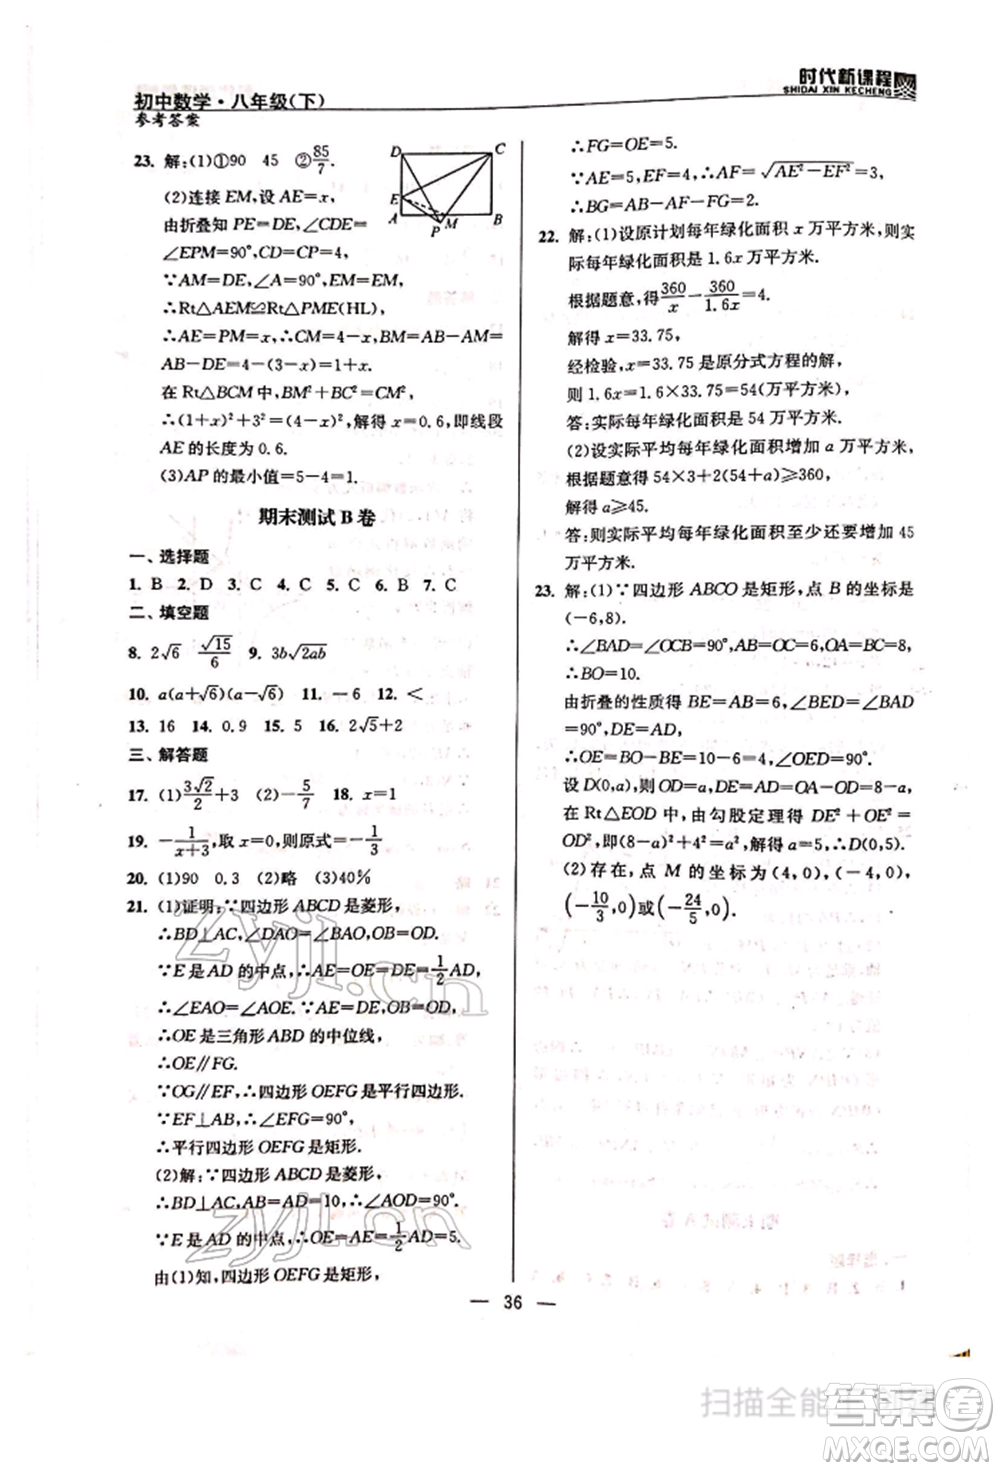 初中数学·八年级(下)
参考答案
时代新课程
SHIDAI XIN KECHENG
23. 解:(1)①90 45 ②85/7.
(2)连接 EM,设 AE=x,
由折叠知 PE=DE,∠CDE=
∠EPM=90°,CD=CP=4.
∵AM=DE,∠A=90°,
∴Rt△AEM≌Rt△PME(HL),
∴AE=PM=x,∴CM=4-x,BM=
AB-DE=4-(3-x)=1+x.
在 Rt△BCM 中,BM²+BC²=CM²,
∴(1+x)²+3²=(4-x)²,解得 x=0.6,即线段
AE 的长度为 0.6.
(3)AP 的最小值=5-4=1.
D C E A P M B
期末测试 B 卷
一、选择题
1. B 2. D 3. C 4. C 5. C 6. B 7. C
二、填空题
8. 2√6 √15/6 9. 3b√2ab
10. a(a+√6)(a-√6) 11. -6 12. <
13. 16 14. 0.9 15. 5 16. 2√5+2
三、解答题
17. (1)3√2/2+3 (2)-5/7 18. x=1
19. -1/(x+3),取 x=0,则原式=-1/3
20. (1)90 0.3 (2)略 (3)40%
21. (1)证明:∵四边形 ABCD 是菱形,
∴BD⊥AC,∠DAO=∠BAO,OB=OD.
∵E 是 AD 的中点,∴AE=OE=DE=1/2AD,
∴∠EAO=∠AOE.∵AE=DE,OB=OD,
∴OE 是三角形 ABD 的中位线,
∴OE∥FG.
∵OG∥EF,∴四边形 OEFG 是平行四边形.
∵EF⊥AB,∴∠EFG=90°,
∴平行四边形 OEFG 是矩形.
(2)解:∵四边形 ABCD 是菱形,
∴BD⊥AC,AB=AD=10,∴∠AOD=90°.
∵E 是 AD 的中点,∴OE=AE=1/2AD=5.
由(1)知,四边形 OEFG 是矩形,
∴FG=OE=5.
∵AE=5,EF=4,∴AF=√AE²-EF²=3,
∴BG=AB-AF-FG=2.
22. 解:(1)设原计划每年绿化面积 x 万平方米,则实
际每年绿化面积 1.6x 万平方米.
根据题意,得360/x-360/1.6x=4.
解得 x=33.75.
经检验,x=33.75 是原分式方程的解,
则 1.6x=1.6×33.75=54(万平方米).
答:实际每年绿化面积是 54 万平方米.
(2)设实际平均每年绿化面积增加 a 万平方米,
根据题意得 54×3+2(54+a)≥360,
解得 a≥45.
答:则实际平均每年绿化面积至少还要增加 45
万平方米.
23. 解:(1)∵四边形 ABCO 是矩形,点 B 的坐标是
(-6,8).
∴∠BAD=∠OCB=90°,AB=OC=6,OA=BC=8,
∴BO=10.
由折叠的性质得 BE=AB=6,∠BED=∠BAD
=90°,DE=AD,
∴OE=BO-BE=10-6=4,∠OED=90°.
设 D(0,a),则 OD=a,DE=AD=OA-OD=8-a,
在 Rt△EOD 中,由勾股定理得 DE²+OE²=
OD²,即(8-a)²+4²=a²,解得 a=5.∴D(0,5).
(2)存在,点 M 的坐标为(4,0),(-4,0),
(-10/3,0)或(-24/5,0).
— 36 —
zyjl.cn
zyjl.cn
答案卷
MXQE.COM